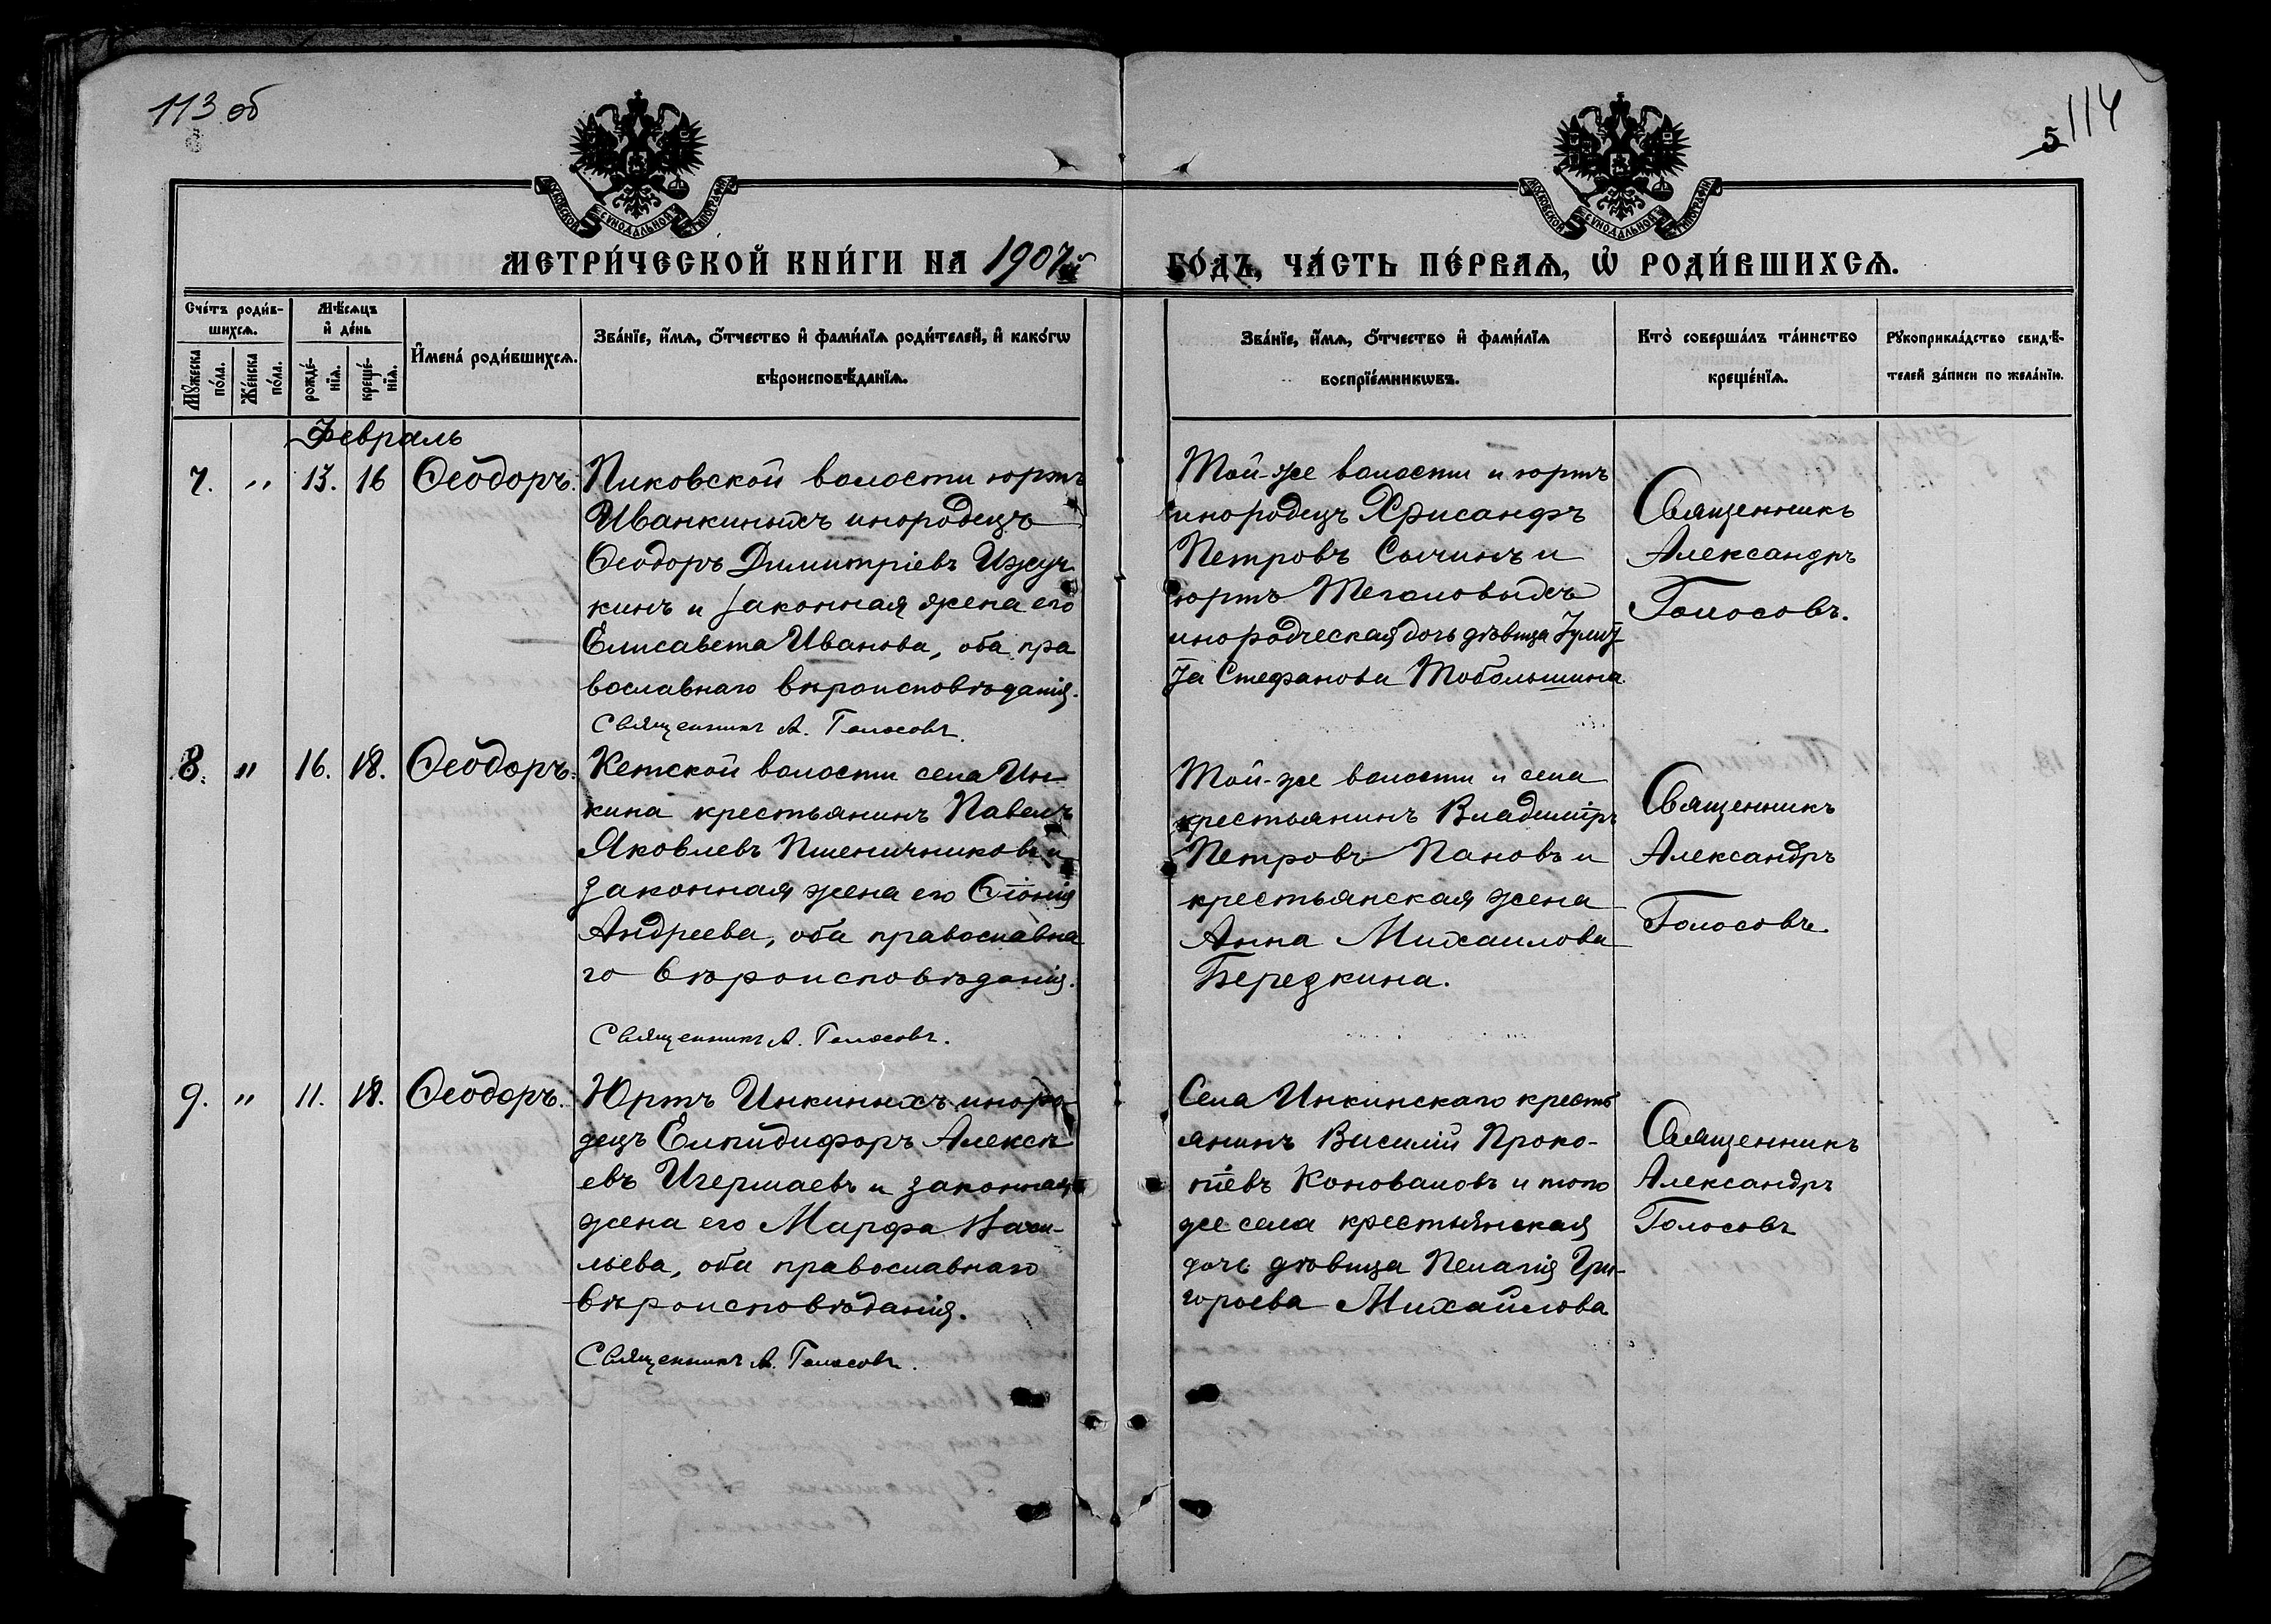 113 об
114
5
МОСКОВСКОЙ СѴНОДАЛЬНОЙ ТИПОГРАФІИ
МОСКОВСКОЙ СѴНОДАЛЬНОЙ ТИПОГРАФІИ
МЕТРИ́ЧЕСКОЙ КНИ́ГИ НА 1907й ГО́ДЪ, ЧА́СТЬ ПЕ́РВАѦ, Ѡ РОДИ́ВШИХСѦ.
Сче́тъ роди́в-
шихсѧ.
Мꙋжеска по́ла.
Же́нска по́ла.
Мѣ́сѧцъ
и҆ де́нь
рожде́-
нїѧ.
креще́-
нїѧ.
И҆мена̀ роди́вшихсѧ.
Зва́нїе, и҆́мѧ, ѻ҆́тчество и҆ фами́лїѧ роди́телей, и҆ како́гѡ
вѣроисповѣ́данїѧ.
Зва́нїе, и҆́мѧ, ѻ҆́тчество и҆ фами́лїѧ
воспрїе́мникѡвъ.
Кто̀ соверша́лъ та́инство
креще́нїѧ.
Рꙋкоприкла́дство свидѣ́-
телей за́писи по жела́нїю.
Февраль
7. " 13. 16 Ѳеодоръ.
Пиковской волости юртъ
Иванкиныхъ инородецъ
Ѳеодоръ Димитріевъ Ижуч
кинъ и законная жена его
Елисавета Иванова, оба пра
вославнаго вѣроисповѣданія.
Священникъ А. Голосовъ.
Той-же волости и юртъ
инородецъ Хрисанфъ
Петровъ Сычинъ и
юртъ Тегаловыхъ
инородческая дочь дѣвица
Стефанова Тобольшина.
Священникъ
Александръ
Голосовъ.
8. " 16. 18. Ѳеодоръ.
Кетской волости села Ин-
кина крестьянинъ Павелъ
Яковлевъ Пшеничниковъ и
законная жена его Ѳіонія
Андреева, оба православна
го вѣроисповѣданія.
Священникъ А. Голосовъ.
Той-же волости и села
крестьянинъ Владиміръ
Петровъ Пановъ и
крестьянская жена
Анна Михаилова
Березкина.
Священникъ
Александръ
Голосовъ.
9. " 11. 18. Ѳеодоръ.
Юртъ Инкиныхъ иноро-
децъ Елпидифоръ Алексѣ
евъ Игермаевъ и законная
жена его Марфа Васи-
льева, оба православнаго
вѣроисповѣданія.
Священникъ А. Голосовъ.
Села Инкинскаго кресть
янинъ Василій Проко-
піевъ Коноваловъ и того
же села крестьянская
дочь дѣвица Пелагія Гри-
горьева Михайлова
Священникъ
Александръ
Голосовъ